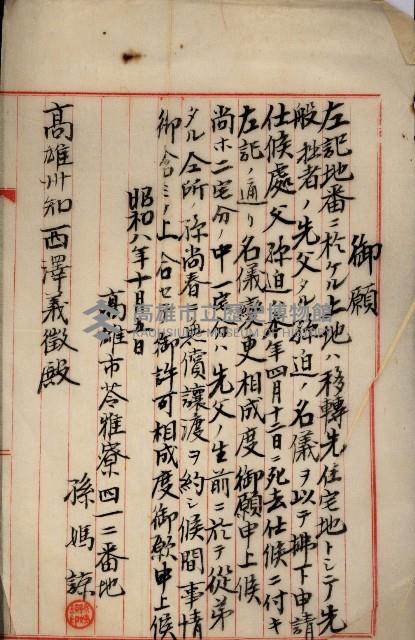 御願
左記地番ニ於ケル土地ハ移轉先住宅地トシテ先
般拙者ノ先父タル孫迫ノ名儀ヲ以テ拂下申請
仕候處父孫迫本年四月十二日ニ死去仕候ニ付キ
左記ノ通リ名儀變更相成度御願申上候
尚ホ二宅分ノ中一宅ハ先父ノ生前ニ於テ從弟
タル仝所ノ孫尚春無償讓渡ヲ約シ候間事情
御含ミノ上合セ御許可相成度御願申上候
昭和八年十月五日
高雄市苓雅寮四一二番地
孫媽諒
高雄州知西澤義徵殿
高雄市立歷史博物館
KAOHSIUNG MUSEUM OF HISTORY